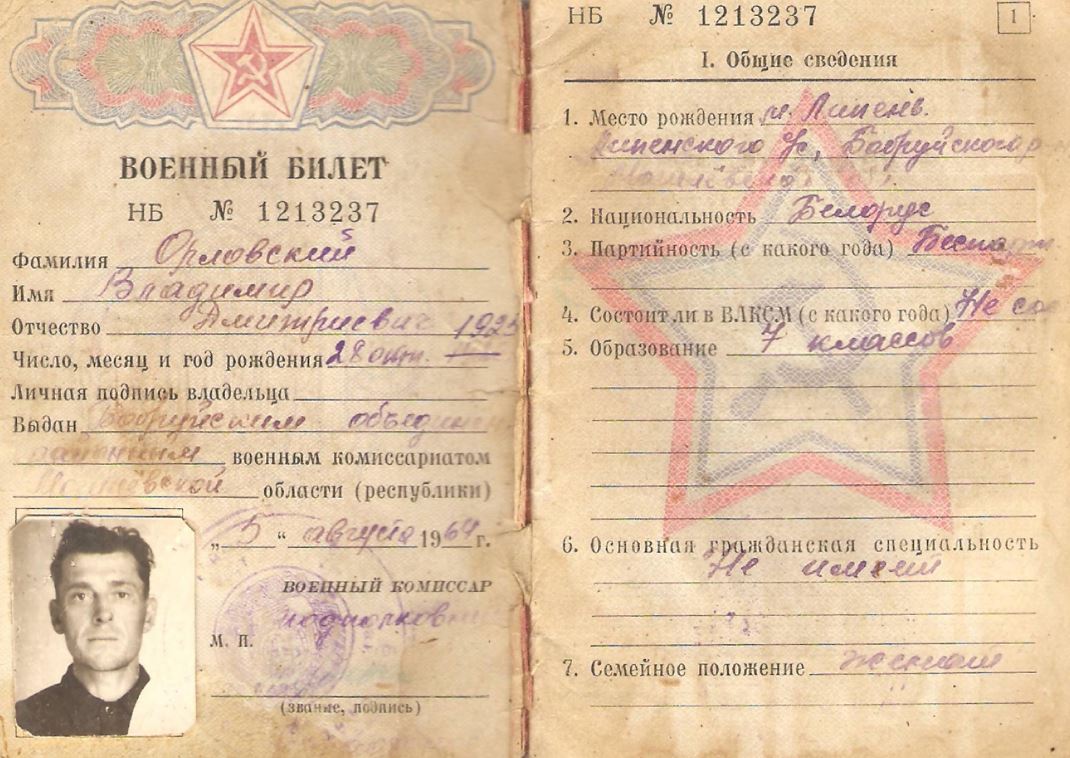 ВОЕННЫЙ БИЛЕТ
НБ № 1213237
Фамилия Орловский
Имя Владимир
Отчество Дмитриевич
Число, месяц и год рождения 28 окт. 1925
Личная подпись владельца
Выдан Бобруйским объединён
районным военным комиссариатом
Могилёвской области (республики)
„5“ августа 1964 г.
ВОЕННЫЙ КОМИССАР
подполковн
М. П.
(звание, подпись)
НБ № 1213237
1
I. Общие сведения
1. Место рождения м. Липень.
Липенского Бобруйского р
2. Национальность Белорус
3. Партийность (с какого года) Беспарт.
4. Состоит ли в ВЛКСМ (с какого года) Не сос
5. Образование 7 классов
6. Основная гражданская специальность
Не имеет
7. Семейное положение женат